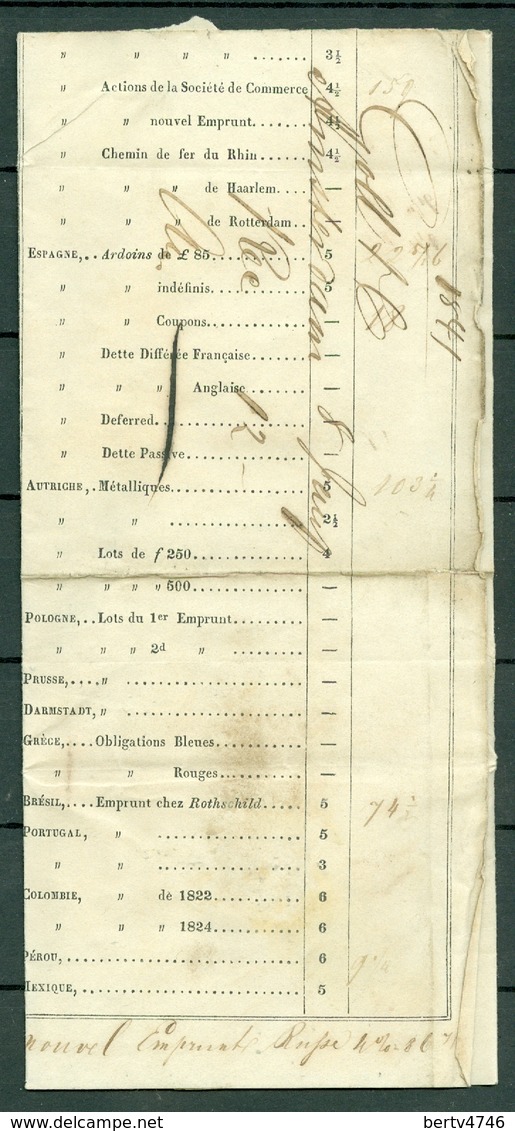 " " " " ....... 3½
" Actions de la Société de Commerce 4½ 150
" " nouvel Emprunt....... 4½
" Chemin de fer du Rhin....... 4½
" " " de Haarlem.... —
" " " de Rotterdam.. —
ESPAGNE,.. Ardoins de £ 85........... 5
" " indéfinis........... 5
" " Coupons............ —
" Dette Différée Française....... —
" " " Anglaise........ —
" Deferred.................. —
" Dette Passive............. —
AUTRICHE,. Métalliques............... 5 103¼
" " ................ 2½
" Lots de f 250............. 4
" " " " 500............ —
POLOGNE,.. Lots du 1er Emprunt......... —
" " " 2d " ......... —
PRUSSE,.... " ...................... —
DARMSTADT, " ...................... —
GRÈCE,.... Obligations Bleues.......... —
" " Rouges........ —
BRÉSIL,.... Emprunt chez Rothschild..... 5 74½
PORTUGAL, " ................. 5
" " ................. 3
COLOMBIE, " de 1822.......... 6
" " " 1824.......... 6
PÉROU,........................... 6
MEXIQUE,......................... 5
nouvel Emprunt Russe
Amsterdam 8
1841
12
bertv4746